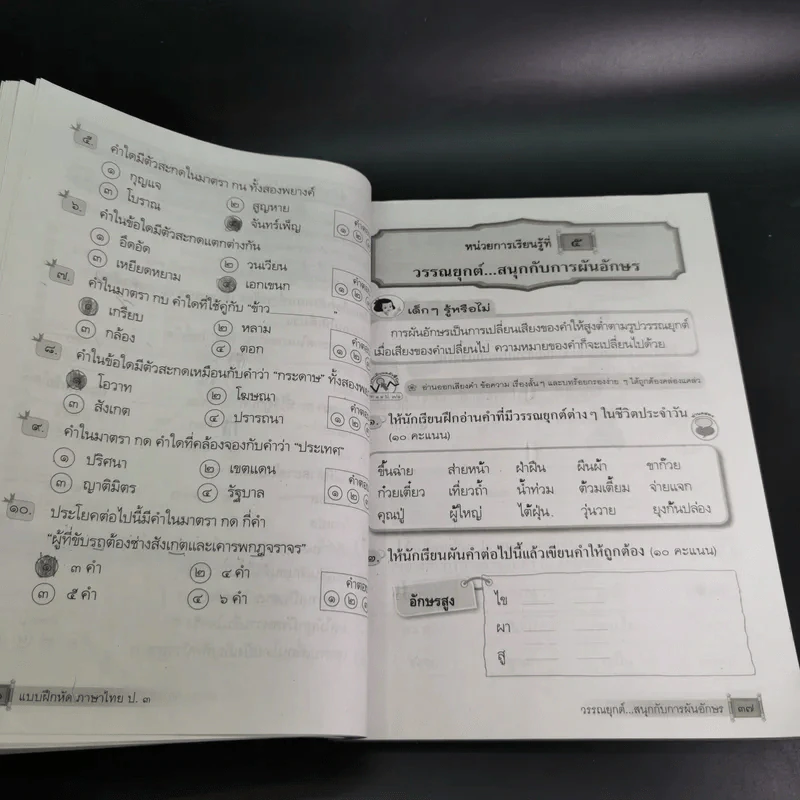 ๕.
คำใดมีตัวสะกดในมาตรา กน ทั้งสองพยางค์
๑ กุญแจ ๒ สูญหาย
๓ โบราณ จันทร์เพ็ญ
๖.
คำในข้อใดมีตัวสะกดแตกต่างกัน
๑ อึดอัด ๒ วนเวียน
๓ เหยียดหยาม ๔ เอกเขนก
๗.
คำในมาตรา กบ คำใดที่ใช้คู่กับ "ข้าว__________"
เกรียบ ๒ หลาม
๓ กล้อง ๔ ตอก
๘.
คำในข้อใดมีตัวสะกดเหมือนกับคำว่า "กระดาษ" ทั้งสองพย
โอวาท ๒ โฆษณา
๓ สังเกต ๔ ปรารถนา
๙.
คำในมาตรา กด คำใดที่คล้องจองกับคำว่า "ประเทศ"
๑ ปริศนา ๒ เขตแดน
๓ ญาติมิตร ๔ รัฐบาล
๑๐.
ประโยคต่อไปนี้มีคำในมาตรา กด กี่คำ
"ผู้ที่ขับรถต้องช่างสังเกตและเคารพกฎจราจร"
๓ คำ ๒ ๔ คำ
๓ ๕ คำ ๔ ๖ คำ
คำตอ
๑ ๒
แบบฝึกหัด ภาษาไทย ป. ๓
หน่วยการเรียนรู้ที่ ๕
วรรณยุกต์...สนุกกับการผันอักษร
เด็กๆ รู้หรือไม่
การผันอักษรเป็นการเปลี่ยนเสียงของคำให้สูงต่ำตามรูปวรรณยุกต์
เมื่อเสียงของคำเปลี่ยนไป ความหมายของคำก็จะเปลี่ยนไปด้วย
อ่านออกเสียงคำ ข้อความ เรื่องสั้นๆ และบทร้อยกรองง่าย ๆ ได้ถูกต้องคล่องแคล่ว
๑. ให้นักเรียนฝึกอ่านคำที่มีวรรณยุกต์ต่าง ๆ ในชีวิตประจำวัน
(๑๐ คะแนน)
ขึ้นฉ่าย ส่ายหน้า ฝ่าฝืน ผืนผ้า ขาก๊วย
ก๋วยเตี๋ยว เที่ยวถ้ำ น้ำท่วม ต้วมเตี้ยม จ่ายแจก
คุณปู่ ผู้ใหญ่ ไต้ฝุ่น วุ่นวาย ยุงก้นปล่อง
ให้นักเรียนผันคำต่อไปนี้แล้วเขียนคำให้ถูกต้อง (๑๐ คะแนน)
อักษรสูง
ไข
ผา
สู
วรรณยุกต์...สนุกกับการผันอักษร ๓๗